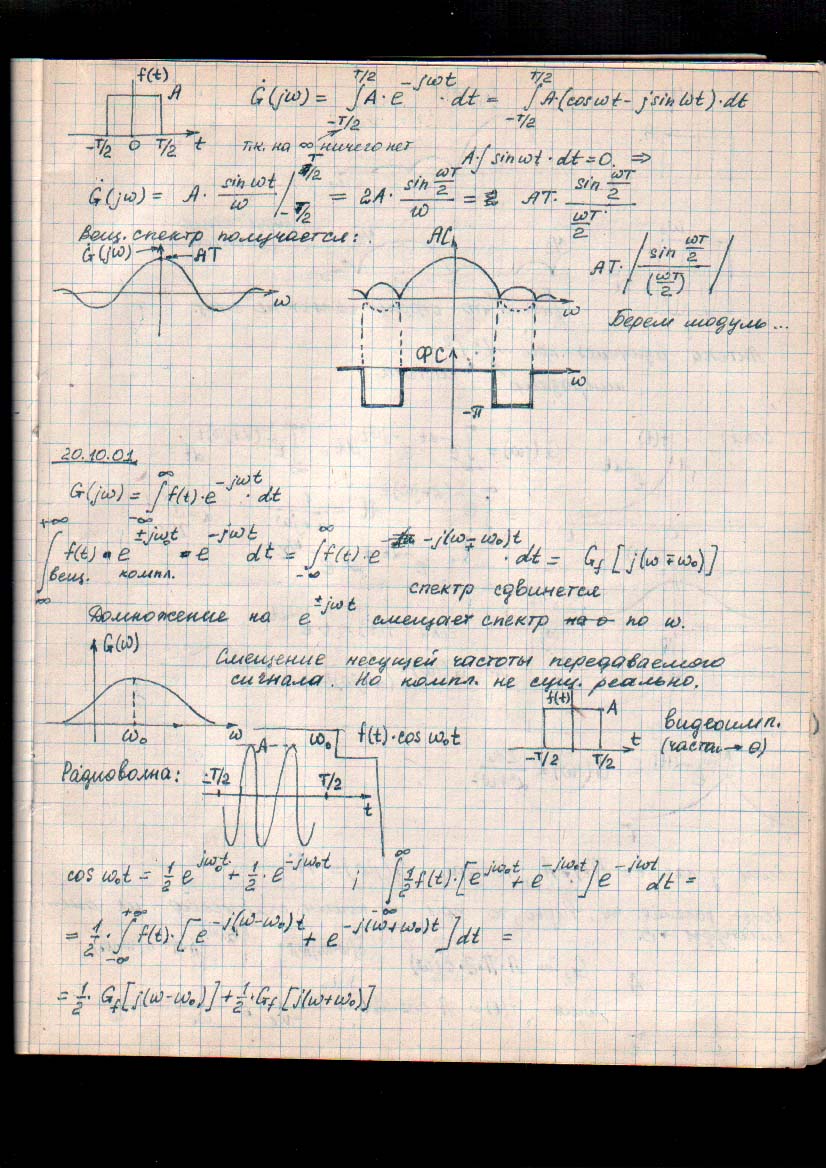 f(t) A -T/2 0 T/2 t
Ġ(jω) = ∫_{-T/2}^{T/2} A·e^{-jωt}·dt = ∫_{-T/2}^{T/2} A·(cosωt - jsinωt)·dt
т.к. на ∞ ничего нет
A·∫sinωt·dt = 0. ⇒
Ġ(jω) = A· sinωt/ω |_{-T/2}^{T/2} = 2A· sin(ωT/2)/ω = AT· sin(ωT/2)/(ωT/2)
Вещ. спектр получается:
Ġ(jω) AT ω
АС ω
AT·| sin(ωT/2)/(ωT/2) |
Берем модуль...
ФС ω -π
20.10.01
G(jω) = ∫_{-∞}^{∞} f(t)·e^{-jωt}·dt
∫_{∞}^{+∞} f(t)·e^{±jω₀t}·e^{-jωt} dt = ∫_{-∞}^{∞} f(t)·e^{-j(ω∓ω₀)t}·dt = G_f[j(ω∓ω₀)]
вещ. компл.
спектр сдвинется
Домножение на e^{±jωt} смещает спектр по ω.
G(ω) ω₀ ω
Смещение несущей частоты передаваемого
сигнала. Но компл. не сущ. реально.
f(t) A -T/2 T/2 t
видеоимп.
(часты → 0)
Радиоволна:
-T/2 A ω₀ T/2 t
f(t)·cos ω₀t
cos ω₀t = ½ e^{jω₀t} + ½·e^{-jω₀t} ; ∫_{-∞}^{∞} ½f(t)·[e^{jω₀t} + e^{-jω₀t}]e^{-jωt} dt =
= ½·∫_{-∞}^{+∞} f(t)·[e^{-j(ω-ω₀)t} + e^{-j(ω+ω₀)t}]dt =
= ½· G_f[j(ω-ω₀)] + ½·G_f[j(ω+ω₀)]